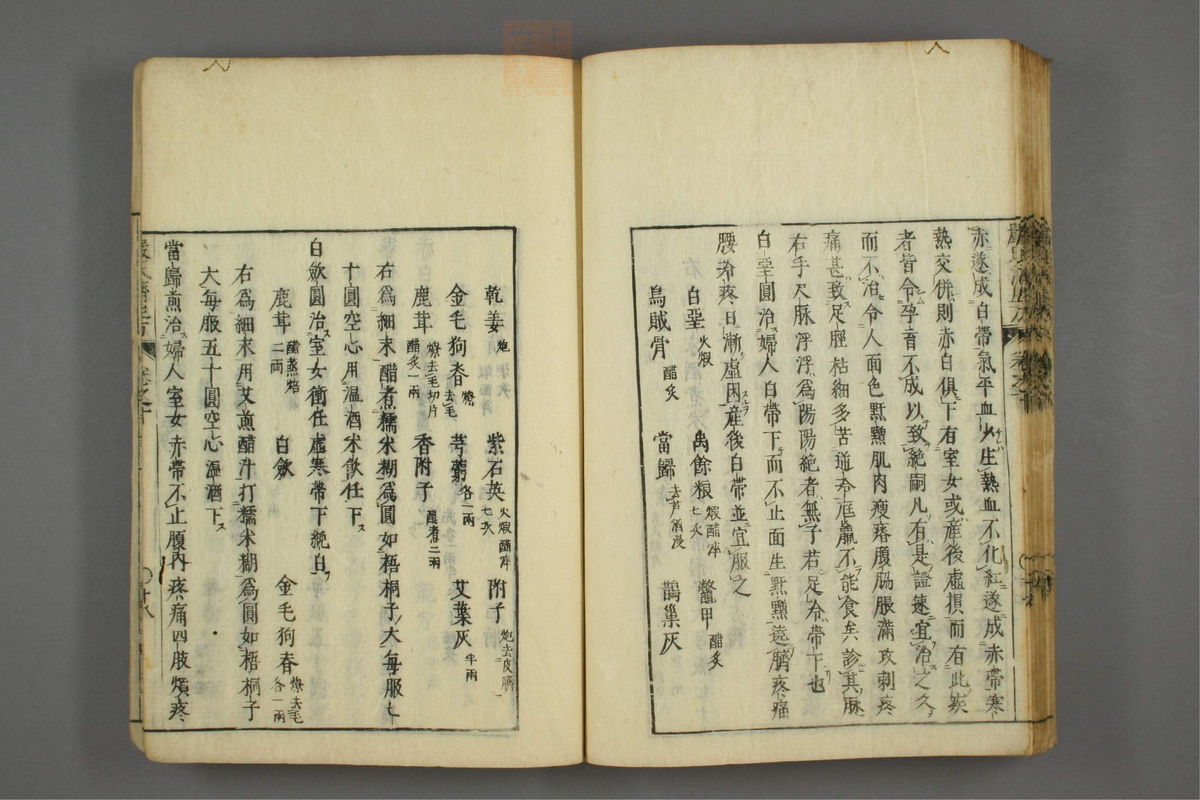 赤遂成白帶氣平血少生熱血不化紅遂成赤帶寒
熱交併則赤白俱下有室女或産後虛損而有此疾
者皆令孕育不成以致絶嗣凡有是證速宜治之久
而不治令人面色䵟䵳肌肉瘦瘠腹脇脹滿攻刺疼
痛甚致足脛枯細多苦逆冷尫羸不能食矣診其脉
右手尺脉浮浮爲陽陽絶者無子若足冷帶下也
白堊圓治婦人白帶下而不止面生䵟䵳遶臍疼痛
腰冷疼日漸虛困産後白帶並宜服之
白堊火煅 禹餘粮煅醋淬七次 鱉甲醋炙
烏賊骨醋炙 當歸去芦酒浸 鵲巢灰
乾姜炮 紫石英火煅醋淬七次 附子炮去皮臍
金毛狗脊燎去毛 芎藭各一兩 艾葉灰半兩
鹿茸燎去毛切片醋炙一兩 香附子醋煮二兩
右爲細末醋煮糯米糊爲圓如梧桐子大每服七
十圓空心用温酒米飲任下
白歛圓治室女衝任虛寒帶下純白
鹿茸醋蒸焙二兩 白歛 金毛狗脊燎去毛各一兩
右爲細末用艾煎醋汁打糯米糊爲圓如梧桐子
大每服五十圓空心温酒下
當歸煎治婦人室女赤帶不止腹内疼痛四肢煩疼